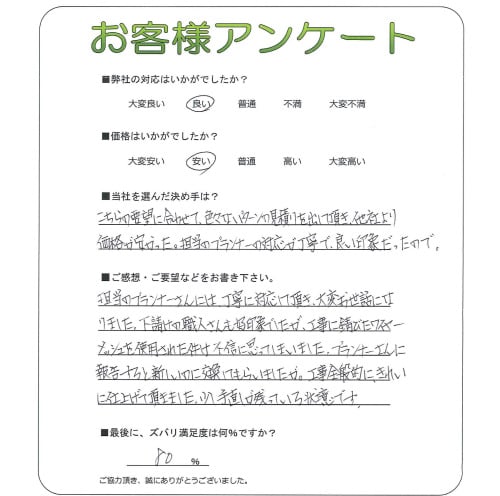 お客様アンケート
■弊社の対応はいかがでしたか？
大変良い 良い 普通 不満 大変不満
■価格はいかがでしたか？
大変安い 安い 普通 高い 大変高い
■当社を選んだ決め手は？
こちらの要望に合わせて、色々なパターンの見積りを出して頂き、他社より
価格が安かった。担当のプランナーの対応が丁寧で、良い印象だったので。
■ご感想・ご要望などをお書き下さい。
担当のプランナーさんには、丁寧に対応して頂き、大変お世話にな
りました。下請けの職人さんも好印象でしたが、工事に錆びたワイヤー
メッシュを使用された件は不信に思ってしまいました。プランナーさんに
報告すると、新しい物に交換してもらいましたが。工事全般的に、きれい
に仕上げて頂きました。少し手直しが残っている状態です。
■最後に、ズバリ満足度は何％ですか？
80 ％
ご協力頂き、誠にありがとうございました。